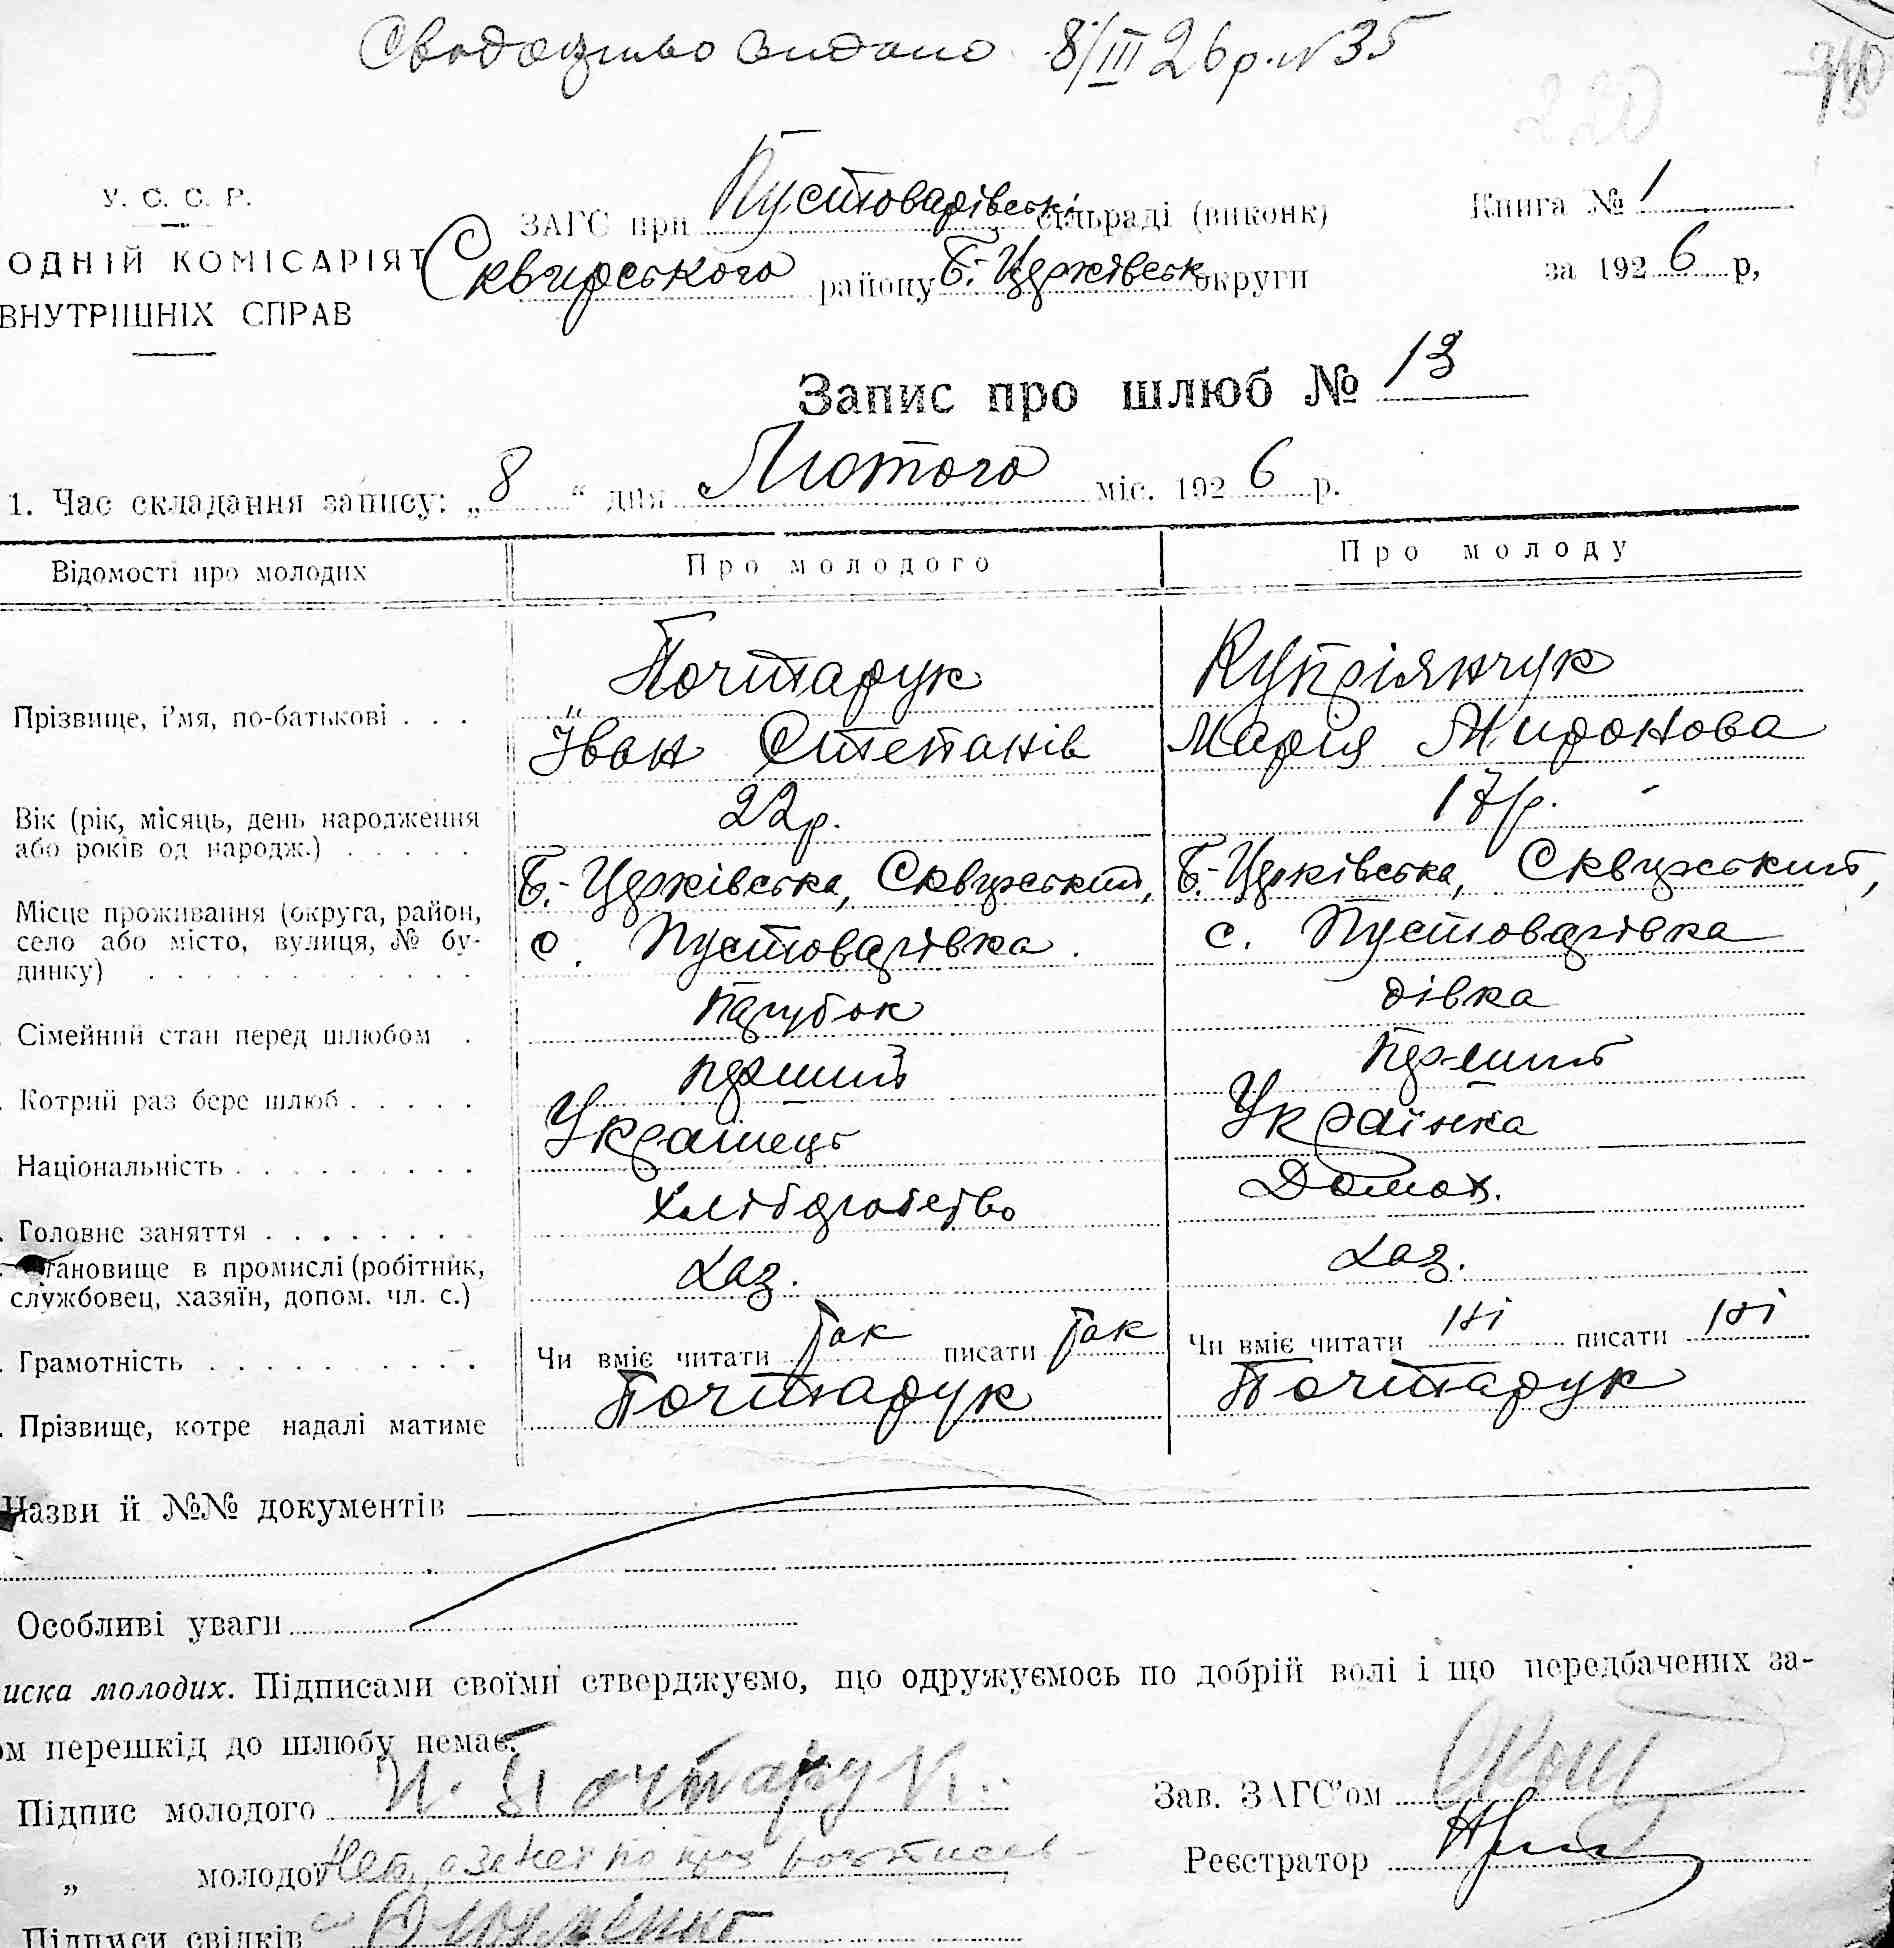 Сводоцтво видано 8/III 26 р. N 35
220
У. С. С. Р.
ЗАГС при Пустоварівські сільраді (виконк)
Книга № 1
ОДНІЙ КОМІСАРІЯТ
Сквирського району Б.-Церківськ округи
за 1926 р,
ВНУТРІШНІХ СПРАВ
Запис про шлюб № 13
1. Час складання запису: „8“ дня Лютого міс. 1926 р.
Відомості про молодих
Про молодого
Про молоду
Прізвище, і'мя, по-батькові . . .
Почтарук
Іван Степанів
Купріянчук
Марія Миронова
Вік (рік, місяць, день народження
або років од народж.) . . . . .
22 р.
17 р.
Місце проживання (округа, район,
село або місто, вулиця, № бу-
динку) . . . . . . . . . . . .
Б.-Церківська, Сквирський,
с. Пустоварівка.
Б.-Церківська, Сквирський,
с. Пустоварівка
Сімейний стан перед шлюбом .
Парубок
дівка
Котрий раз бере шлюб . . . . .
перший
перший
Національність . . . . . . . . .
Українець
Українка
Головне заняття . . . . . . . .
Хліборобство
Домох.
тановище в промислі (робітник,
службовец, хазяїн, допом. чл. с.)
хаз.
хаз.
Грамотність . . . . . . . . . .
Чи вміє читати так писати так
Чи вміє читати ні писати ні
Прізвище, котре надалі матиме
Почтарук
Почтарук
Назви й №№ документів
Особливі уваги
иска молодих. Підписами своїми стверджуємо, що одружуємось по добрій волі і що передбачених за-
ом перешкід до шлюбу немає.
Підпис молодого И. Почтарук.
Зав. ЗАГС'ом
„ молодої
Реєстратор
Підписи свідків